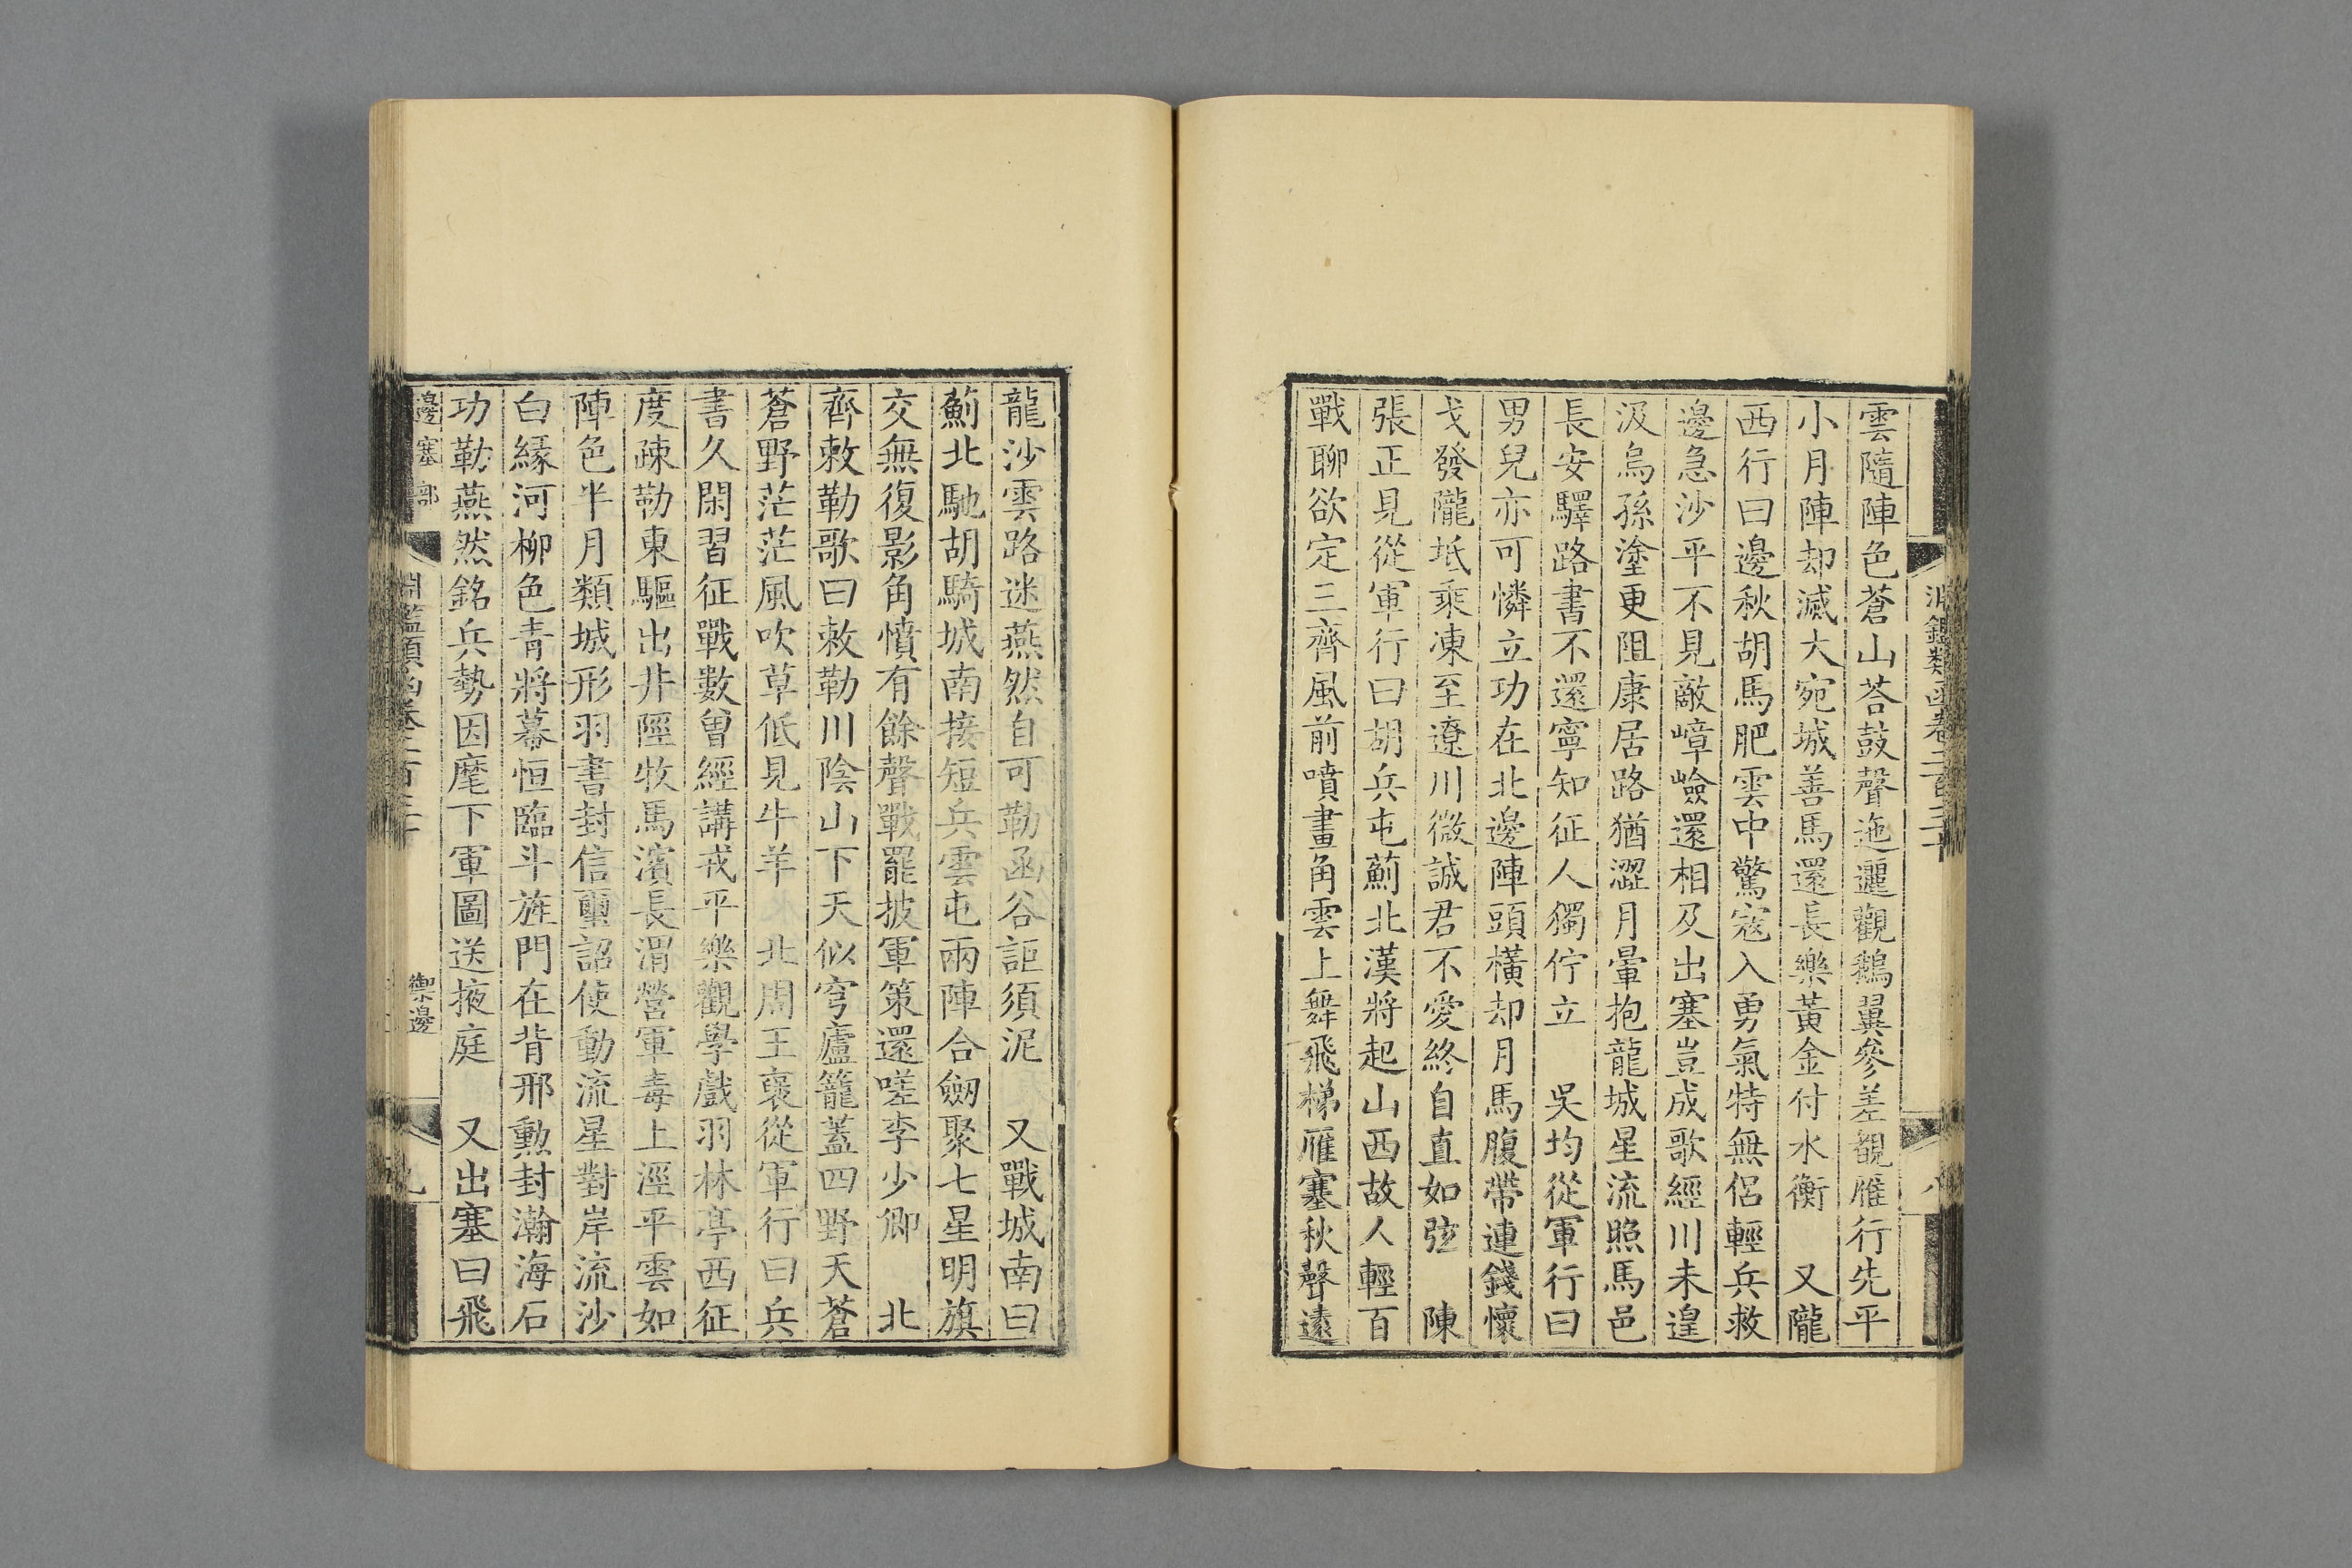 雲隨陣色蒼山荅鼓聲迤邐觀鵝翼參差覩雁行先平
小月陣却滅大宛城善馬還長樂黃金付水衡　又隴
西行曰邊秋胡馬肥雲中驚寇入勇氣特無侶輕兵救
邊急沙平不見敵嶂嶮還相及出塞豈成歌經川未遑
汲烏孫塗更阻康居路猶澀月暈抱龍城星流照馬邑
長安驛路書不還寧知征人獨佇立　吳均從軍行曰
男兒亦可憐立功在北邊陣頭橫却月馬腹帶連錢懷
戈發隴坻乘凍至遼川微誠君不愛終自直如弦　陳
張正見從軍行曰胡兵屯薊北漢將起山西故人輕百
戰聊欲定三齊風前噴畫角雲上舞飛梯雁塞秋聲遠
龍沙雲路迷燕然自可勒函谷詎須泥　又戰城南曰
薊北馳胡騎城南接短兵雲屯兩陣合劒聚七星明旗
交無復影角憤有餘聲戰罷披軍策還嗟李少卿　北
齊敕勒歌曰敕勒川陰山下天似穹廬籠蓋四野天蒼
蒼野茫茫風吹草低見牛羊　北周王褒從軍行曰兵
書久閑習征戰數曾經講戎平樂觀學戲羽林亭西征
度疎勒東驅出井陘牧馬濱長渭營軍毒上涇平雲如
陣色半月類城形羽書封信璽詔使動流星對岸流沙
白緣河柳色青將幕恒臨斗旌門在背邢勲封瀚海石
功勒燕然銘兵勢因麾下軍圖送掖庭　又出塞曰飛
邊塞部　淵鑑類函卷二百三十　禦邊